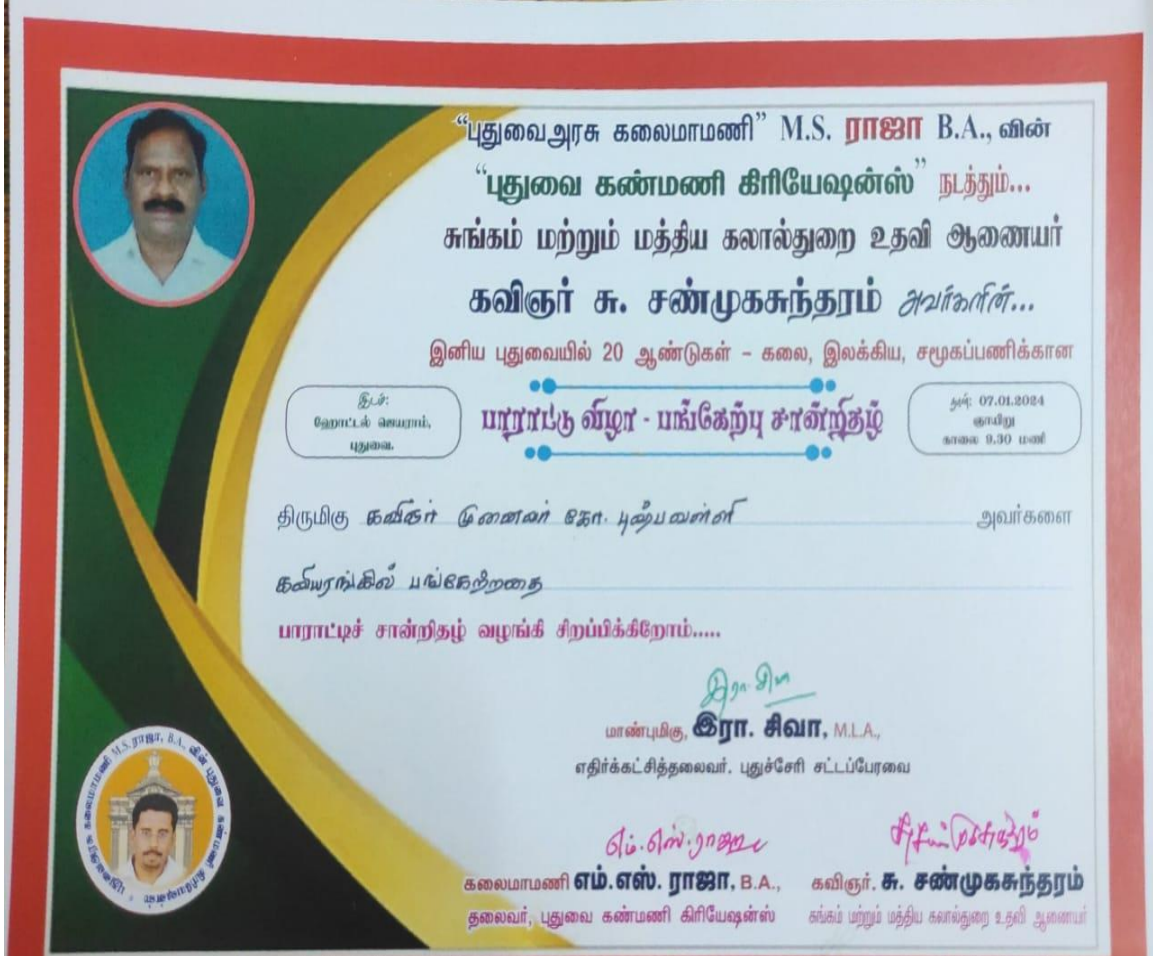 “புதுவைஅரசு கலைமாமணி” M.S. ராஜா B.A., வின்
“புதுவை கண்மணி கிரியேஷன்ஸ்” நடத்தும்...
சுங்கம் மற்றும் மத்திய கலால்துறை உதவி ஆணையர்
கவிஞர் சு. சண்முகசுந்தரம் அவர்களின்...
இனிய புதுவையில் 20 ஆண்டுகள் – கலை, இலக்கிய, சமூகப்பணிக்கான
இடம்:
ஹோட்டல் ஜெயராம்,
புதுவை.
பாராட்டு விழா - பங்கேற்பு சான்றிதழ்
நாள்: 07.01.2024
ஞாயிறு
காலை 9.30 மணி
திருமிகு கவிஞர் முனைவர் கோ. புஷ்பவள்ளி அவர்களை
கவியரங்கில் பங்கேற்றதை
பாராட்டிச் சான்றிதழ் வழங்கி சிறப்பிக்கிறோம்.....
இரா. சிவா
மாண்புமிகு, இரா. சிவா, M.L.A.,
எதிர்க்கட்சித்தலைவர், புதுச்சேரி சட்டப்பேரவை
எம்.எஸ்.ராஜா
கலைமாமணி எம்.எஸ். ராஜா, B.A.,
தலைவர், புதுவை கண்மணி கிரியேஷன்ஸ்
சு.சண்முகசுந்தரம்
கவிஞர். சு. சண்முகசுந்தரம்
சுங்கம் மற்றும் மத்திய கலால்துறை உதவி ஆணையர்
புதுவைஅரசு கலைமாமணி M.S. ராஜா, B.A., வின் புதுவை கண்மணி கிரியேஷன்ஸ்